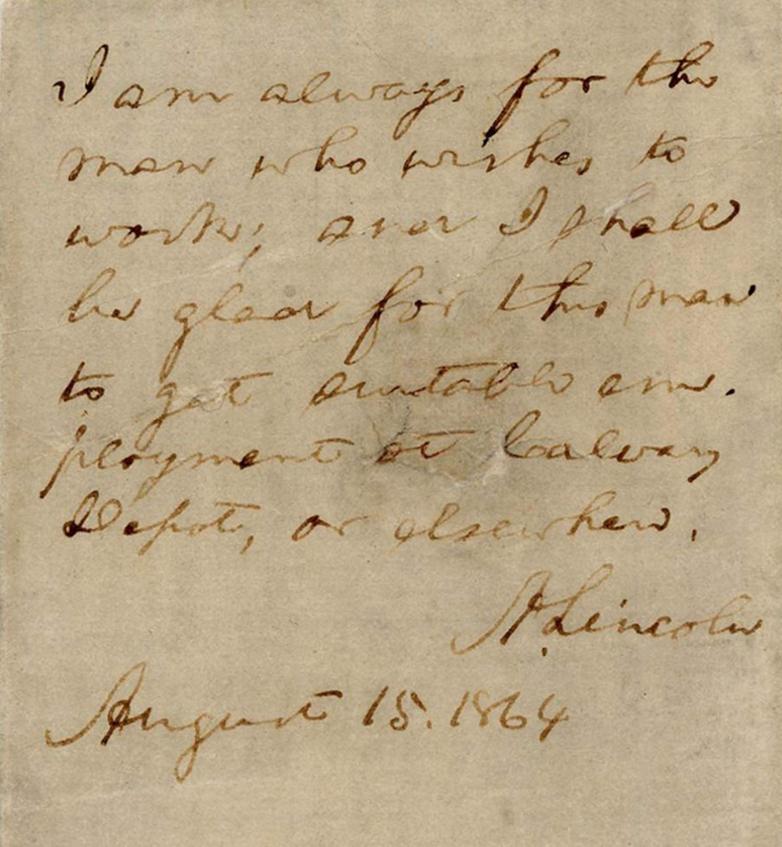 I am always for the
man who wishes to
work; and I shall
be glad for this man
to get suitable em-
ployment at Calvary
Depot, or elsewhere.
A. Lincoln
August 15. 1864